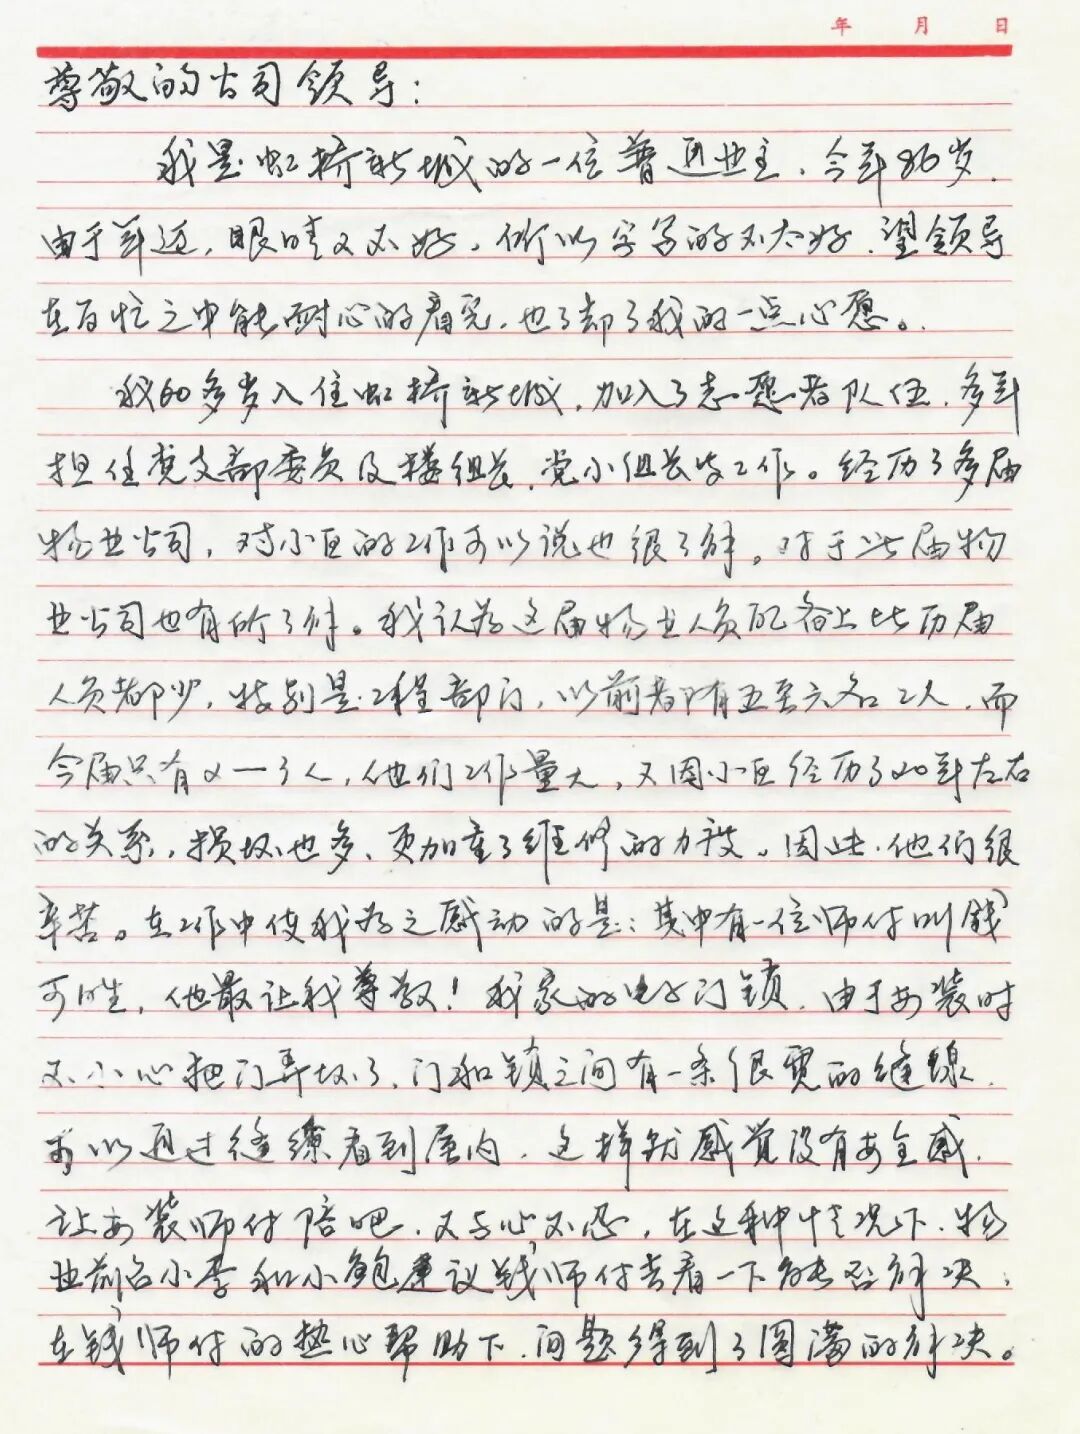 年 月 日
尊敬的公司领导：
我是虹桥新城的一位普通业主，今年86岁，
由于年迈，眼睛又不好，所以字写的不太好，望领导
在百忙之中能耐心的看完，也了却了我的一点心愿。
我60多岁入住虹桥新城，加入了志愿者队伍，多年
担任党支部委员及楼组长，党小组长等工作。经历了多届
物业公司，对小区的工作可以说也很了解。对于此届物
业公司也有所了解。我认为这届物业人员配备上比历届
人员都少，特别是工程部门，以前都有五至六名工人，而
今届只有2一3人，他们工作量大，又因小区经历了20年左右
的关系，损坏也多，更加重了维修的力度。因此，他们很
辛苦。在工作中使我为之感动的是：其中有一位师付叫钱
可生，他最让我尊敬！我家的电子门锁，由于安装时
不小心把门弄坏了，门和锁之间有一条很宽的缝缐，
可以通过缝缭看到屋内，这样就感觉没有安全感，
让安装师付陪吧，又于心不忍，在这种情况下，物
业前台小李和小鲍建议钱师付去看一下能否解决，
在钱师付的热心帮助下，问题得到了圆满的解决。